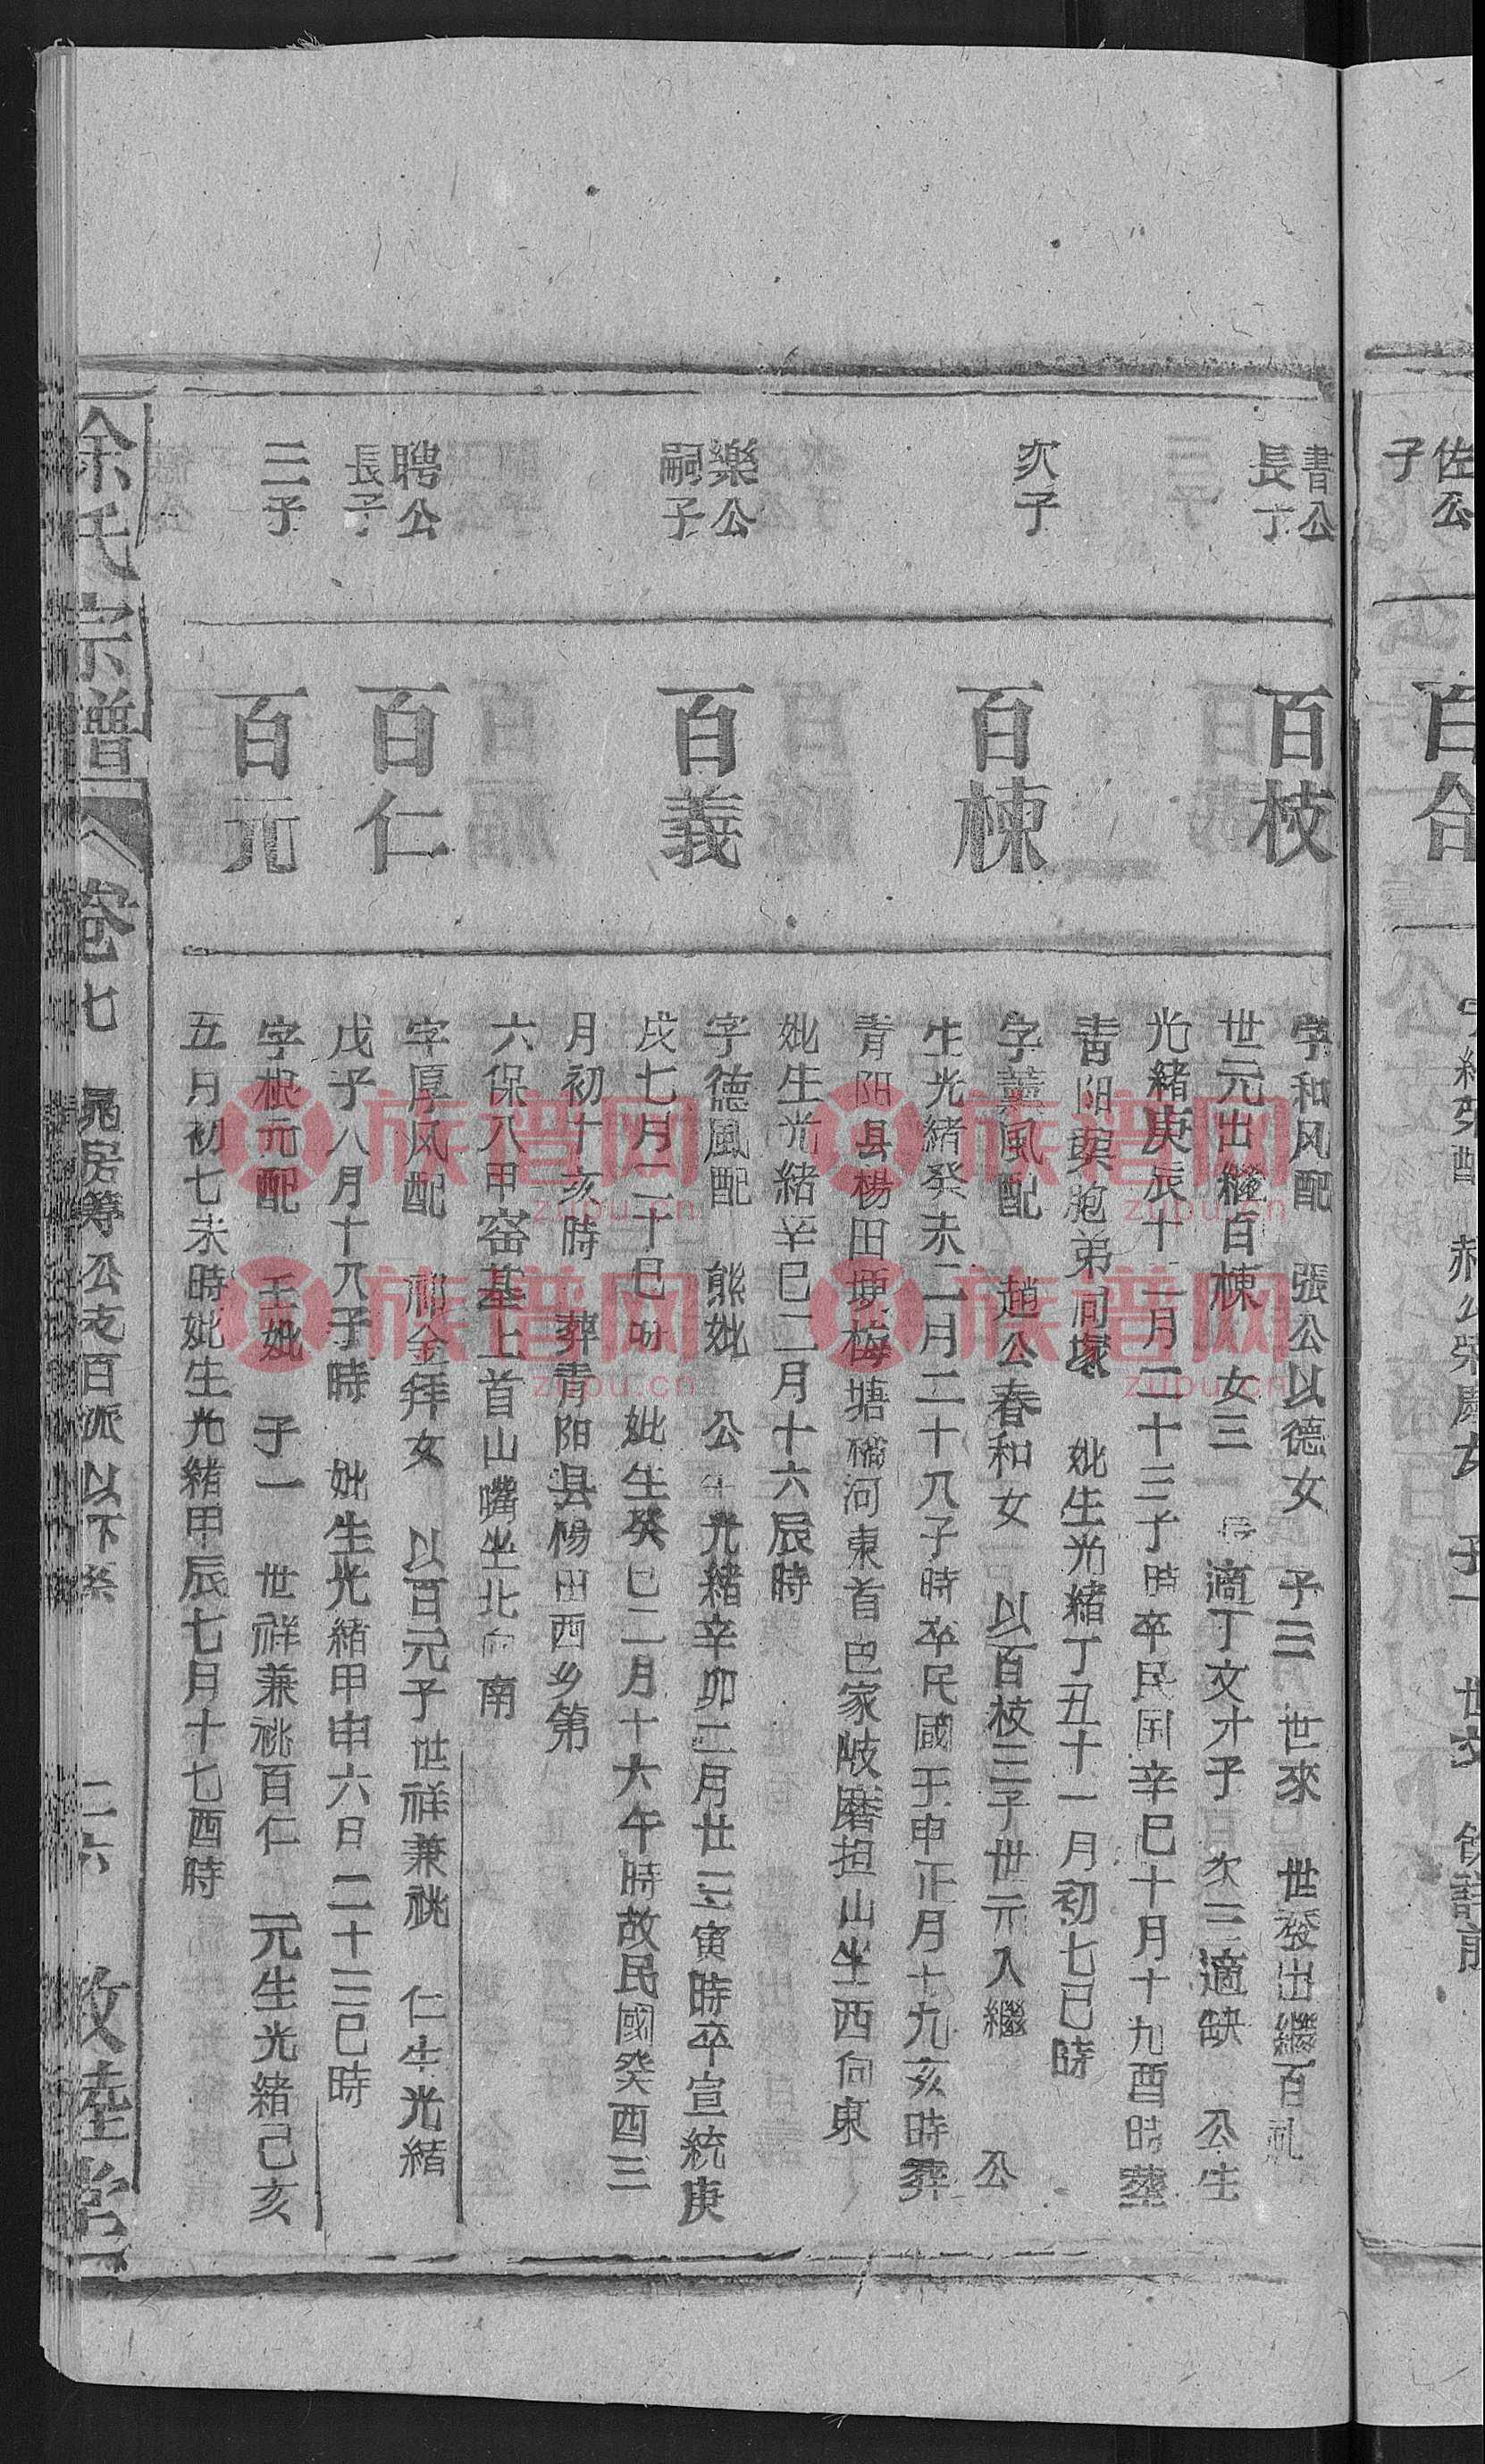 佐公
子
書公
長丁
次子
樂公
嗣子
聘公
長子
三子
百枝
百棟
百義
百仁
百元
字和风配 張公以德女 子三 世來 世發出繼百礼
世元出繼百棟 女三 長適丁文才子 次三適缺 公生
光緒庚辰十二月二十三子時卒民国辛巳十月十九酉時塟
青阳 胞弟同塚 妣生光緒丁丑十一月初七巳時
字薰風配 趙公春和女 以百枝三子世元入繼 公
生光緒癸未二月二十八子時卒民國壬申正月十九亥時葬
青阳县楊田埂梅塘 河東首巴家陂磨担山坐西向東
妣生光緒辛巳二月十六辰時
字德風配 熊妣 公生光緒辛卯二月廿三寅時卒宣統庚
戌七月二十巳时 妣生癸巳二月十六午時故民國癸酉三
月初十亥時 葬青阳县楊田西乡第
六保八甲窑基上首山嘴坐北向南
字厚风配 祁金拜女 以百元子世祥兼祧 仁生光緒
戊子八月十八子時 妣生光緒甲申六日二十三巳時
字根元配 王妣 子一 世祥兼祧百仁 元生光緒己亥
五月初七未時妣生光緒甲辰七月十七酉時
徐氏宗譜
卷七 晁房筹公支百派以下系 二六 敦睦堂
族谱网
zupu.cn
族谱网
zupu.cn
族谱网
zupu.cn
族谱网
zupu.cn